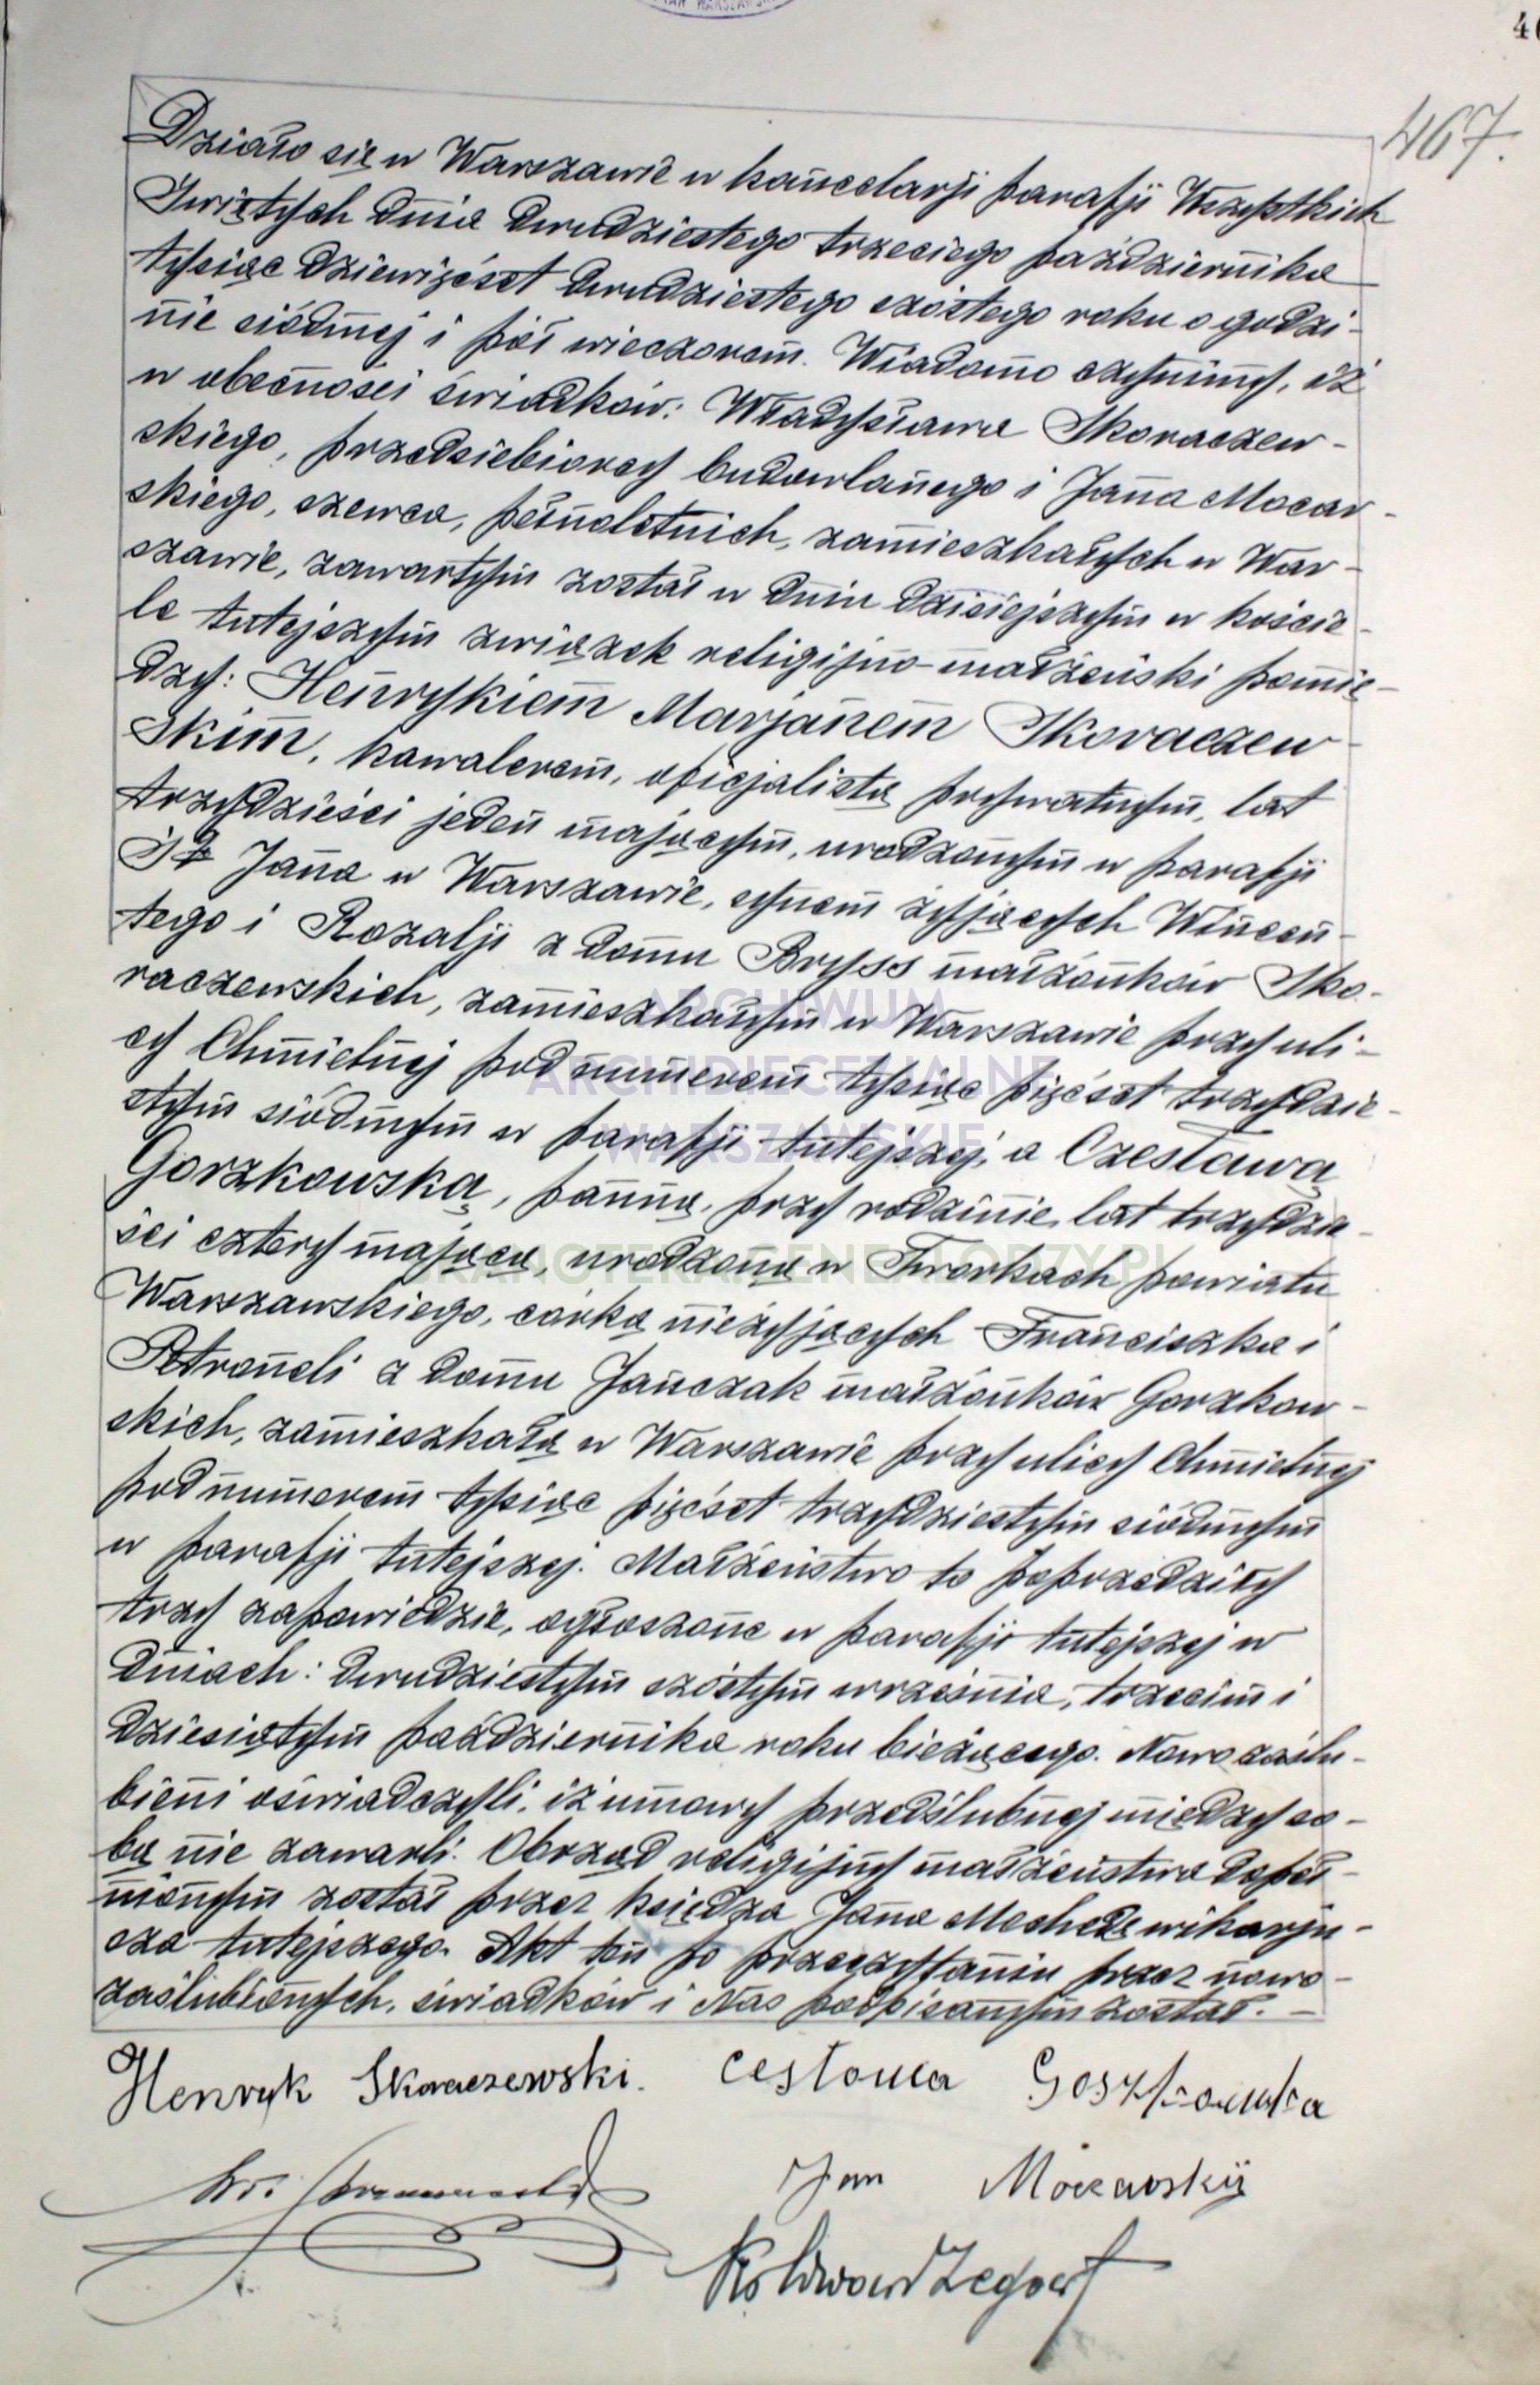 467.
Działo się w Warszawie w kancelarji parafji Wszystkich
Świętych dnia dwudziestego trzeciego października
tysiąc dziewięćset dwudziestego szóstego roku o godzi-
nie siódmej i pół wieczorem. Wiadomo czynimy, iż
w obecności świadków: Władysława Skoraczew-
skiego, przedsiębiorcy budowlanego i Jana Mocar-
skiego, szewca, pełnoletnich, zamieszkałych w War-
szawie, zawartym został w dniu dzisiejszym w koście-
le tutejszym związek religijno-małżeński pomię-
dzy: Henrykiem Marjanem Skoraczew-
skim, kawalerem, oficjalistą prywatnym, lat
trzydzieści jeden mającym, urodzonym w parafji
Ś-go Jana w Warszawie, synem żyjących Wincen-
tego i Rozalji z domu Bryss małżonków Sko-
raczewskich, zamieszkałym w Warszawie przy uli-
cy Chmielnej pod numerem tysiąc pięćset trzydzie-
stym siódmym w parafji tutejszej, a Czesławą
Gorzkowską, panną, przy rodzinie, lat trzydzie-
ści cztery mającą, urodzoną w Tworkach powiatu
Warszawskiego, córką nieżyjących Franciszka i
Petroneli z domu Janczak małżonków Gorzkow-
skich, zamieszkałą w Warszawie przy ulicy Chmielnej
pod numerem tysiąc pięćset trzydziestym siódmym
w parafji tutejszej. Małżeństwo to poprzedziły
trzy zapowiedzie, ogłoszone w parafji tutejszej w
dniach: dwudziestym szóstym września, trzecim i
dziesiątym października roku bieżącego. Nowozaślu-
bieni oświadczyli, iż umowy przedślubnej między so-
bą nie zawarli. Obrząd religijny małżeństwa dopeł-
nionym został przez księdza Jana Mechedę wikarju-
sza tutejszego. Akt ten po przeczytaniu przez nowo-
zaślubionych, świadków i Nas podpisanym został. –
Henryk Skoraczewski. Cesłowa Goszkowska
Jan Mocarskij
ARCHIWUM
ARCHIDIECEZJALNE
WARSZAWSKIE